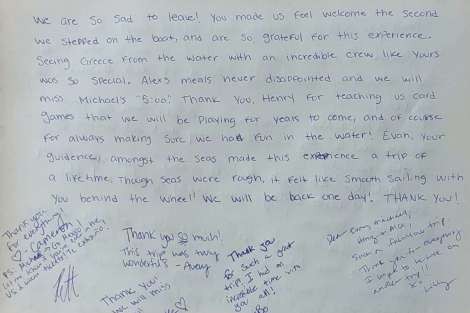 We are so sad to leave! You made us feel welcome the second
we stepped on the boat, and are so grateful for this experience.
Seeing Greece from the water with an incredible crew like yours
was so special. Alex's meals never disappointed and we will
miss Michael's "5:00". Thank you, Henry for teaching us card
games that we will be playing for years to come, and of course
for always making sure we had fun in the water! Evan, your
guidence, amongst the seas made this experience a trip of
a lifetime. Though seas were rough, it felt like smooth sailing with
you behind the wheel! We will be back one day! THANK YOU!
Thank you
for everything!
♡ Cameron!
Thank you so much!
This trip was truly
wonderful ~
Thank you
for such a great
trip. I had an
incredible time with
you all!
Bo
Thank you
we will miss
Dear
Such a fabulous trip.
Thank you for everything
I hope to return on